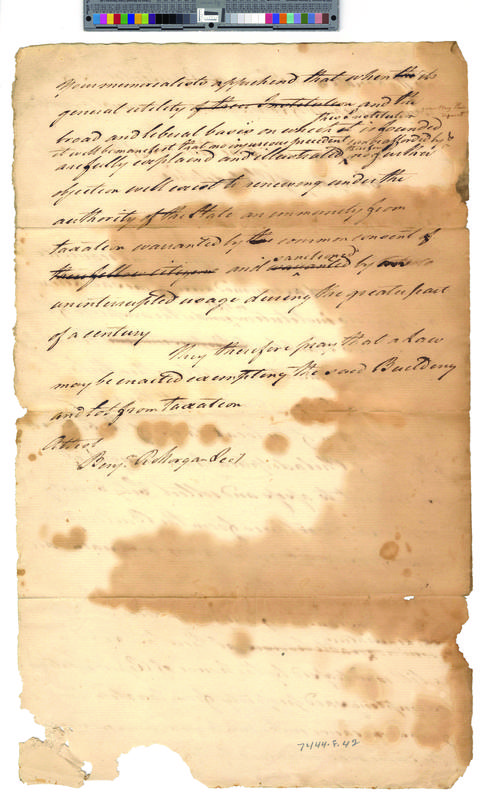 Your memorialists apprehend that when the
general utility of their Institution and the
said institution
broad and liberal basis on which it is founded
it will be manifest that no injurious precedent can be afforded by
are fully explained and illustrated, no
objection will exist to renewing under the
authority of the State an immunity from
taxation warranted by the common consent of
their fellow Citizens and sanctioned warranted by
uninterrupted usage during the greater part
of a century
They therefore pray that a Law
may be enacted exempting the said Building
and lot from taxation
Attest
Benjn. R Morgan Sect
7444.F.42